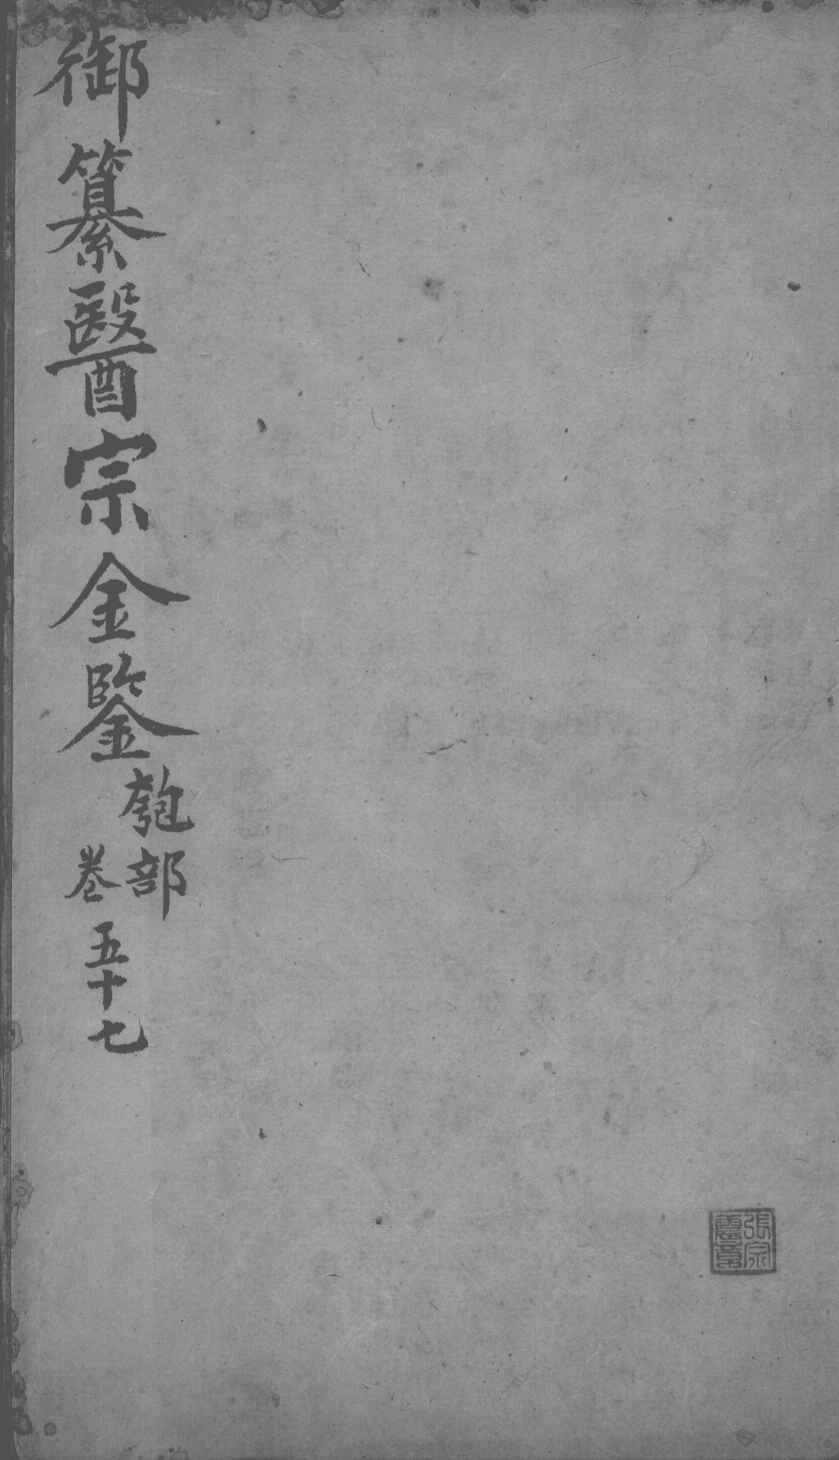 御纂醫宗金鑒
匏部
卷五十七
張宗